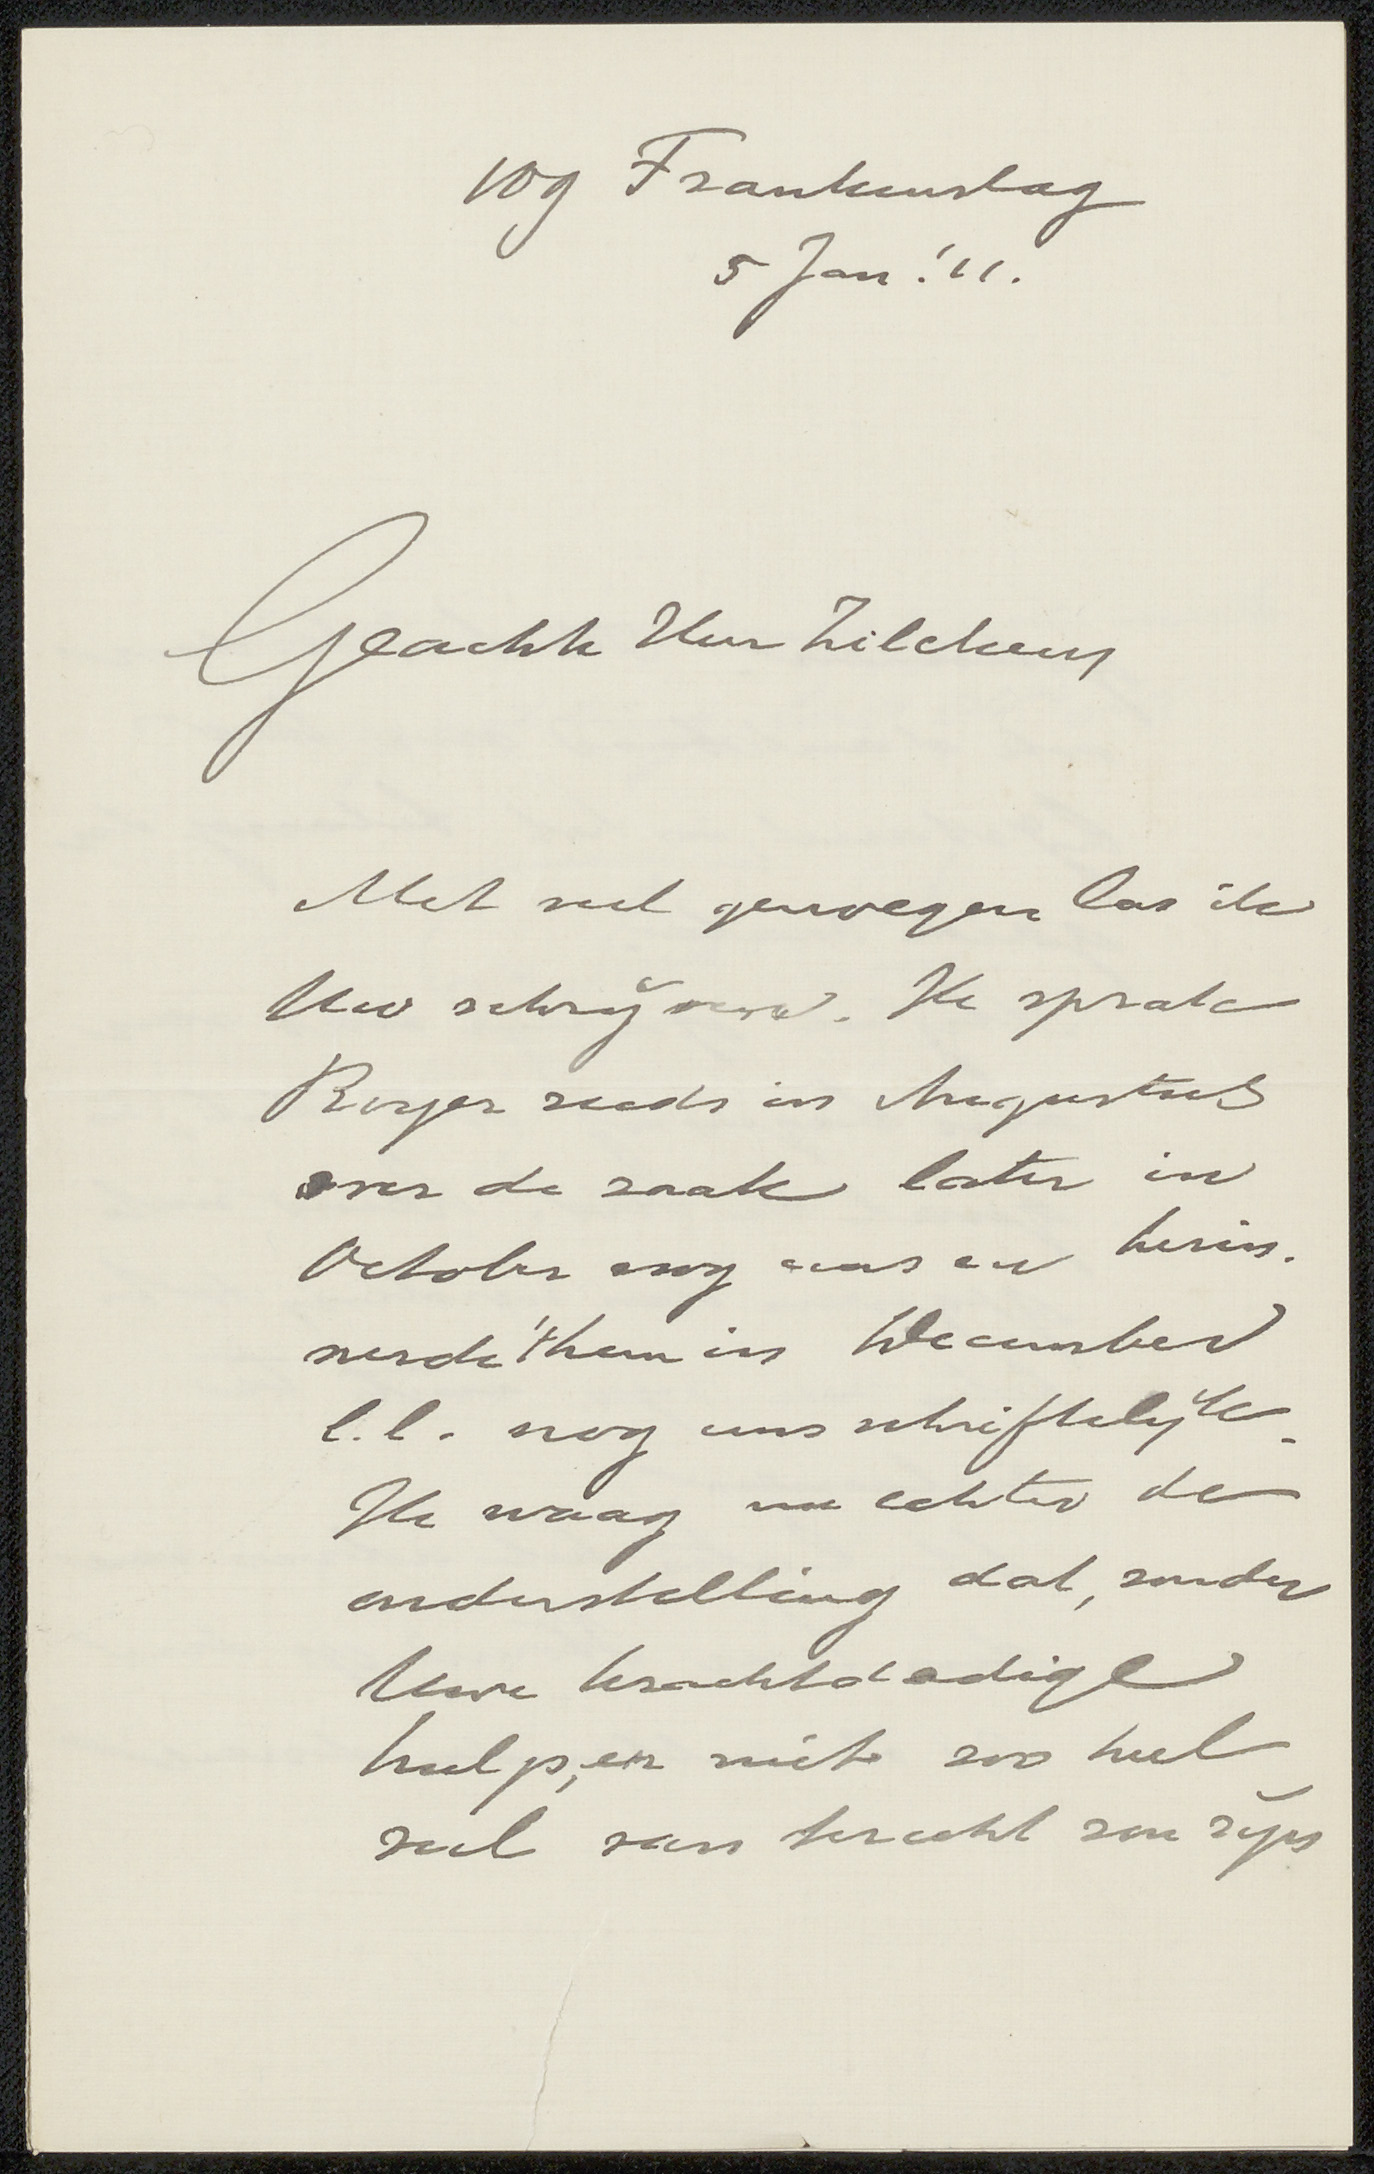 109 Frankenslag
5 Jan. '11.
Geachte Heer Zilcken
Met veel genoegen las ik
Uw schrijven. Ik sprak
Roijer reeds in Augustus
over de zaak later in
October nog eens en herin-
nerde 't hem in December
l.l. nog eens schriftelijk.
Ik waag nu echter de
onderstelling dat, zonder
Uwe krachtdadige
hulp, er niet zoo heel
veel van terecht zou zijn